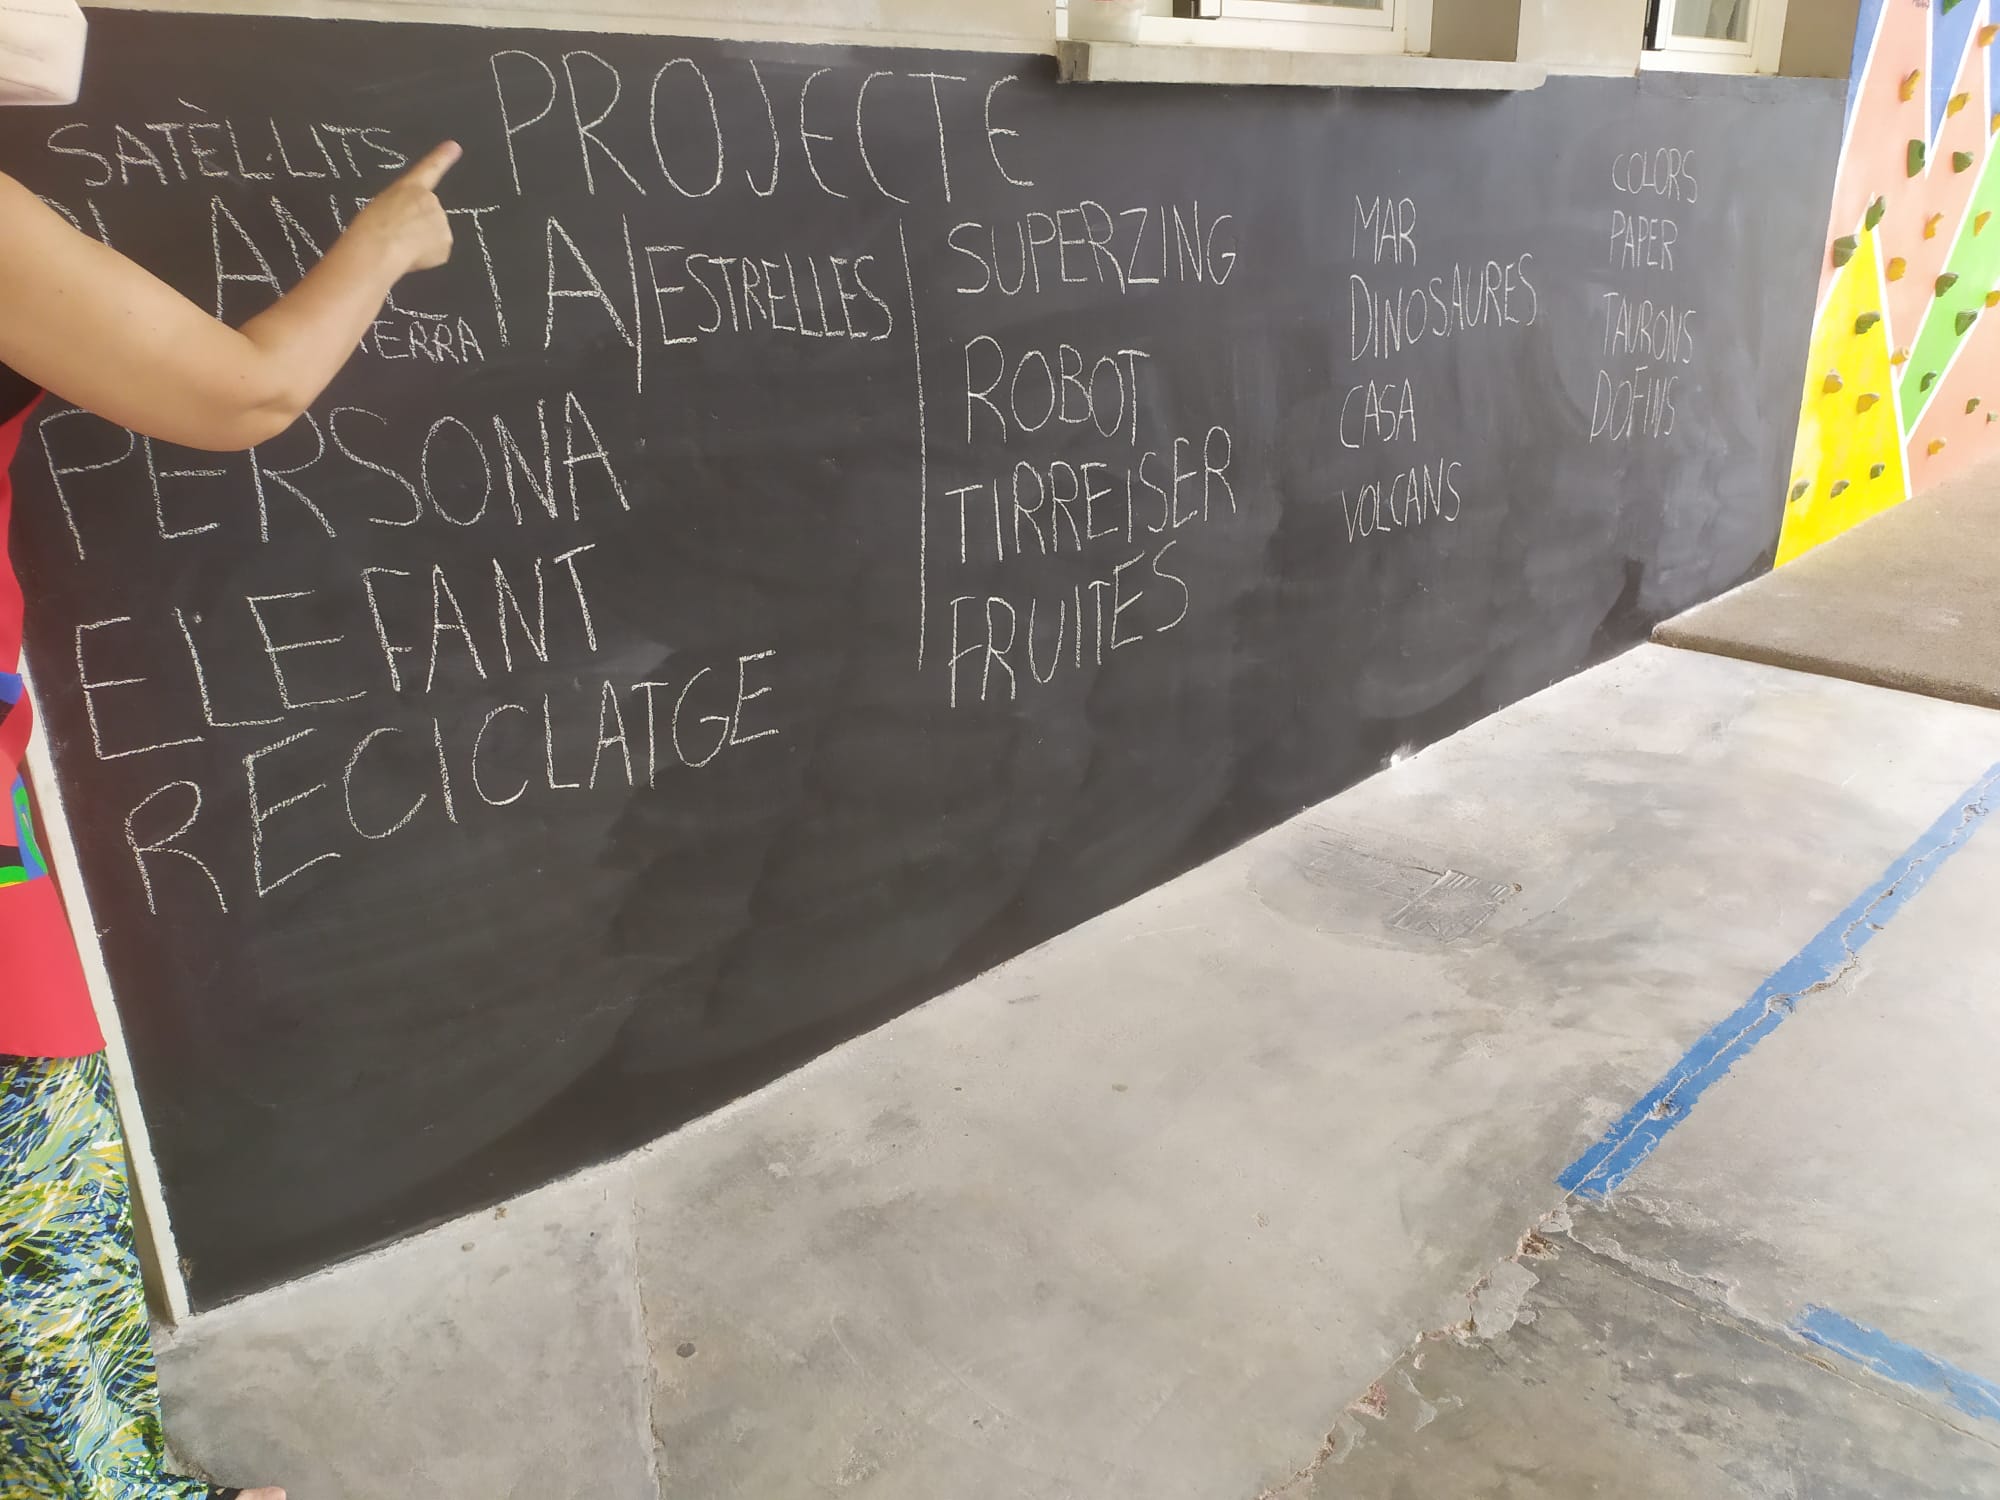 PROJECTE
SATÈL·LITS
PLANETA/ESTRELLES
TERRA
PERSONA
ELEFANT
RECICLATGE
SUPERZING
ROBOT
TIRREISER
FRUITES
MAR
DINOSAURES
CASA
VOLCANS
COLORS
PAPER
TAURONS
DOFINS